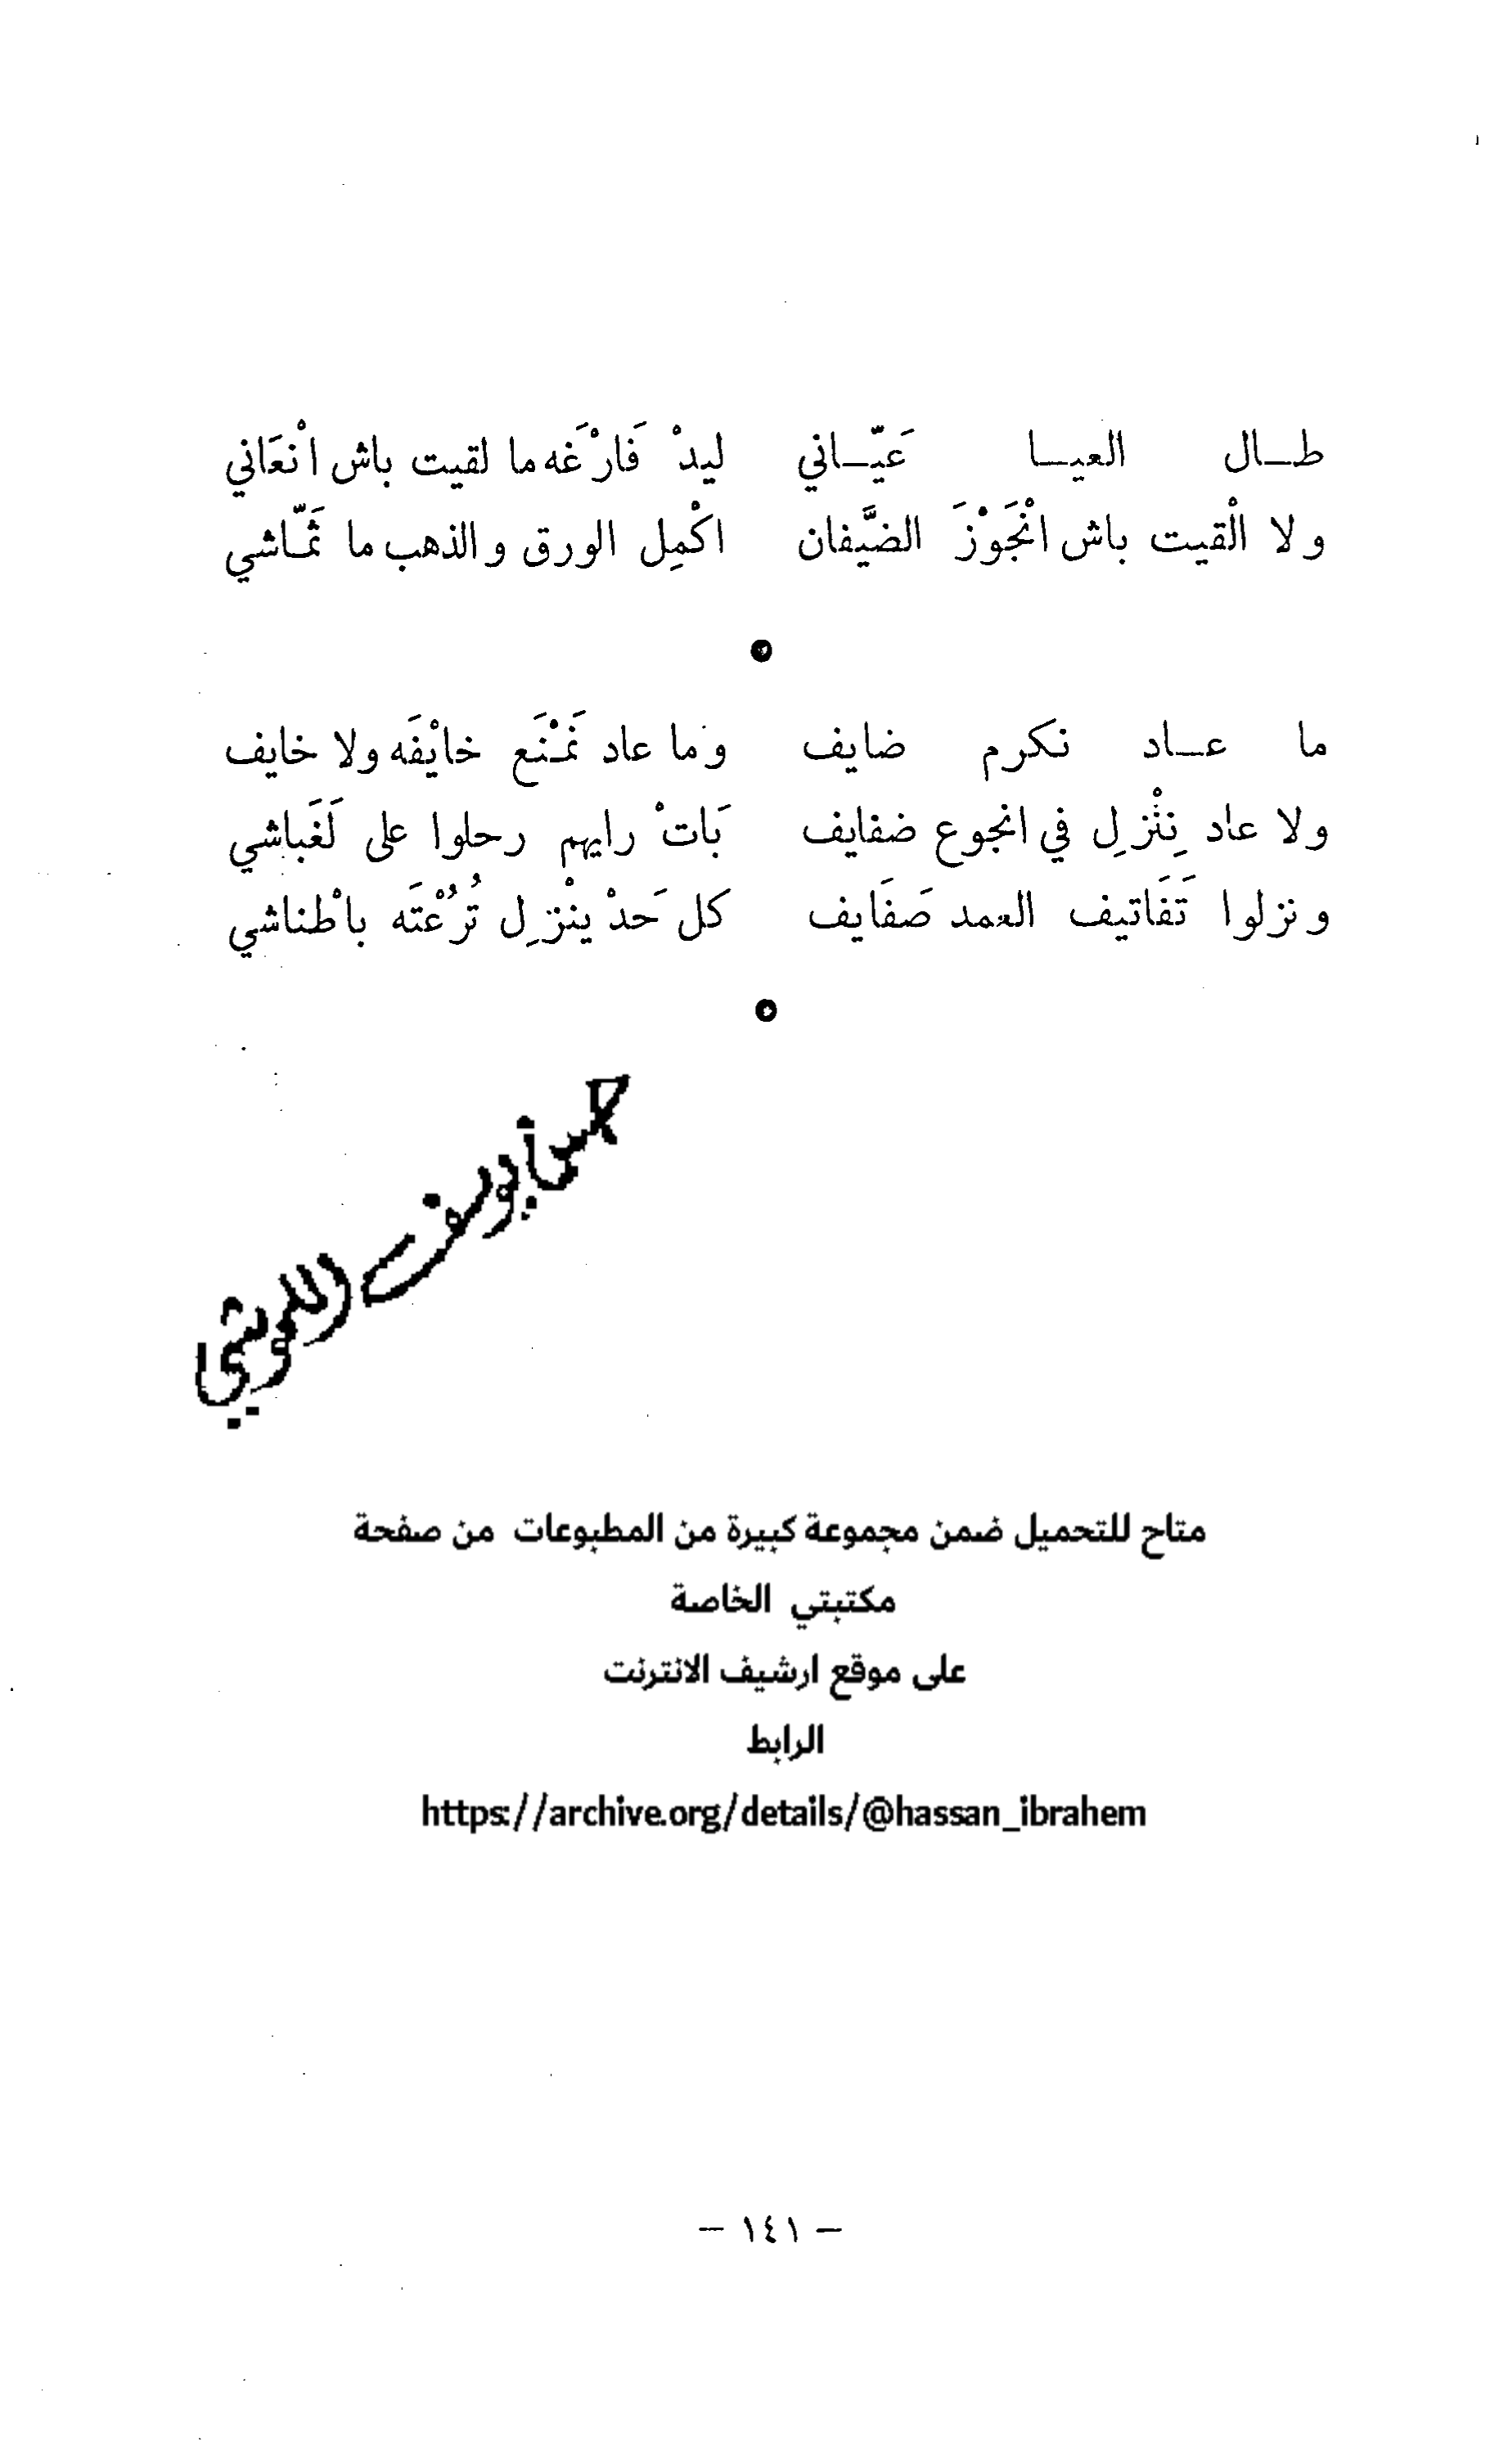 طـال العيـا عَيّـاني ليدْ فَارْغَه ما لقيت باش انْعَاني
ولا الْقيت باش انْجَوْزَ الضيَّفان اكْمِل الورق والذهب ما ثَمّاشي
ما عـاد نكرم ضايف وما عاد نَمْنَع خايْفَه ولا خايف
ولا عاد نِنْزِل في انجوع ضفايف بَاتْ رايهم رحلوا على لَغَباشي
ونزلوا تَفَاتيف العمد صَفَايف كل حَدْ ينْزِل تُرْعْتَه باطْناشي
متاح للتحميل ضمن مجموعة كبيرة من المطبوعات من صفحة
مكتبتي الخاصة
على موقع ارشيف الانترنت
الرابط
https://archive.org/details/@hassan_ibrahem
— ١٤١ —